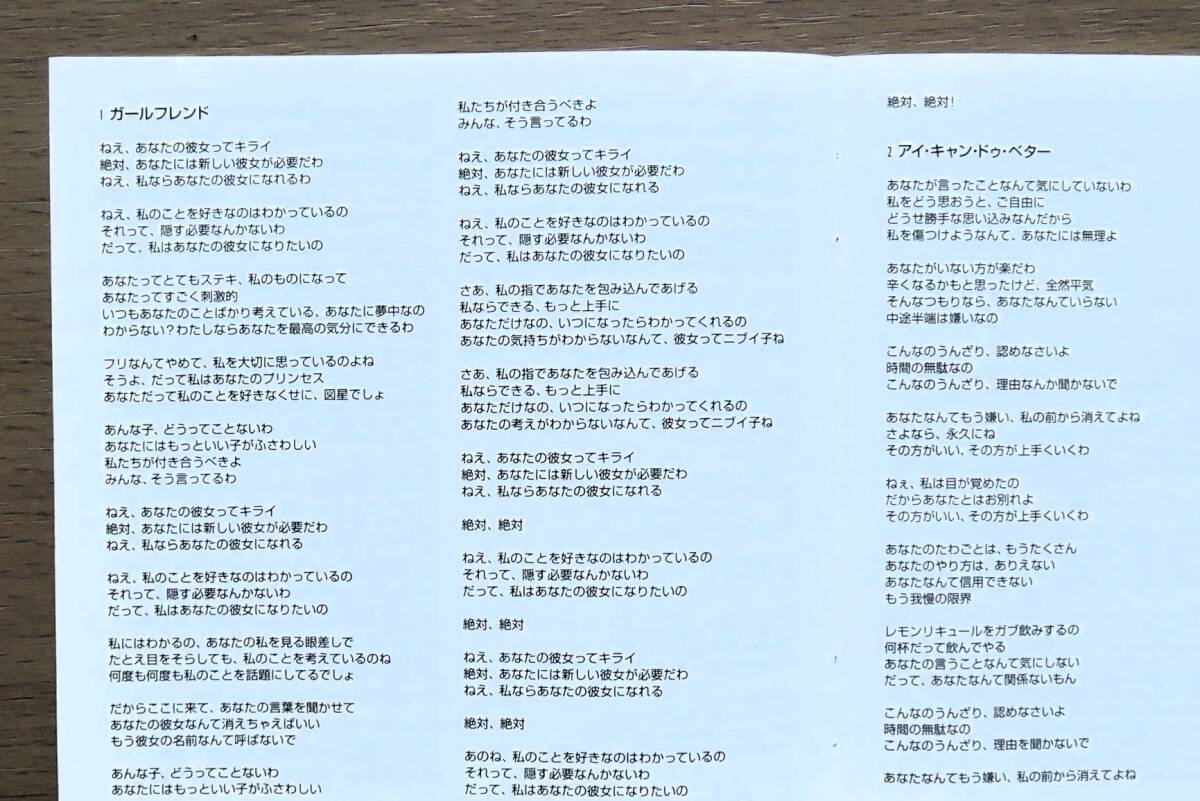 1 ガールフレンド
ねえ、あなたの彼女ってキライ
絶対、あなたには新しい彼女が必要だわ
ねえ、私ならあなたの彼女になれるわ
ねえ、私のことを好きなのはわかっているの
それって、隠す必要なんかないわ
だって、私はあなたの彼女になりたいの
あなたってとてもステキ、私のものになって
あなたってすごく刺激的
いつもあなたのことばかり考えている、あなたに夢中なの
わからない？わたしならあなたを最高の気分にできるわ
フリなんてやめて、私を大切に思っているのよね
そうよ、だって私はあなたのプリンセス
あなただって私のことを好きなくせに、図星でしょ
あんな子、どうってことないわ
あなたにはもっといい子がふさわしい
私たちが付き合うべきよ
みんな、そう言ってるわ
ねえ、あなたの彼女ってキライ
絶対、あなたには新しい彼女が必要だわ
ねえ、私ならあなたの彼女になれる
ねえ、私のことを好きなのはわかっているの
それって、隠す必要なんかないわ
だって、私はあなたの彼女になりたいの
私にはわかるの、あなたの私を見る眼差しで
たとえ目をそらしても、私のことを考えているのね
何度も何度も私のことを話題にしてるでしょ
だからここに来て、あなたの言葉を聞かせて
あなたの彼女なんて消えちゃえばいい
もう彼女の名前なんて呼ばないで
あんな子、どうってことないわ
あなたにはもっといい子がふさわしい
私たちが付き合うべきよ
みんな、そう言ってるわ
ねえ、あなたの彼女ってキライ
絶対、あなたには新しい彼女が必要だわ
ねえ、私ならあなたの彼女になれる
ねえ、私のことを好きなのはわかっているの
それって、隠す必要なんかないわ
だって、私はあなたの彼女になりたいの
さあ、私の指であなたを包み込んであげる
私ならできる、もっと上手に
あなただけなの、いつになったらわかってくれるの
あなたの気持ちがわからないなんて、彼女ってニブイ子ね
さあ、私の指であなたを包み込んであげる
私ならできる、もっと上手に
あなただけなの、いつになったらわかってくれるの
あなたの考えがわからないなんて、彼女ってニブイ子ね
ねえ、あなたの彼女ってキライ
絶対、あなたには新しい彼女が必要だわ
ねえ、私ならあなたの彼女になれる
絶対、絶対
ねえ、私のことを好きなのはわかっているの
それって、隠す必要なんかないわ
だって、私はあなたの彼女になりたいの
絶対、絶対
ねえ、あなたの彼女ってキライ
絶対、あなたには新しい彼女が必要だわ
ねえ、私ならあなたの彼女になれる
絶対、絶対
あのね、私のことを好きなのはわかっているの
それって、隠す必要なんかないわ
だって、私はあなたの彼女になりたいの
絶対、絶対！
2 アイ・キャン・ドゥ・ベター
あなたが言ったことなんて気にしていないわ
私をどう思おうと、ご自由に
どうせ勝手な思い込みなんだから
私を傷つけようなんて、あなたには無理よ
あなたがいない方が楽だわ
辛くなるかもと思ったけど、全然平気
そんなつもりなら、あなたなんていらない
中途半端は嫌いなの
こんなのうんざり、認めなさいよ
時間の無駄なの
こんなのうんざり、理由なんか聞かないで
あなたなんてもう嫌い、私の前から消えてよね
さよなら、永久にね
その方がいい、その方が上手くいくわ
ねぇ、私は目が覚めたの
だからあなたとはお別れよ
その方がいい、その方が上手くいくわ
あなたのたわごとは、もうたくさん
あなたのやり方は、ありえない
あなたなんて信用できない
もう我慢の限界
レモンリキュールをガブ飲みするの
何杯だって飲んでやる
あなたの言うことなんて気にしない
だって、あなたなんて関係ないもん
こんなのうんざり、認めなさいよ
時間の無駄なの
こんなのうんざり、理由を聞かないで
あなたなんてもう嫌い、私の前から消えてよね